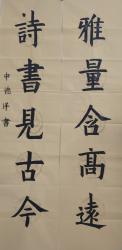 雅量含高遠
詩書見古今
申德洋書